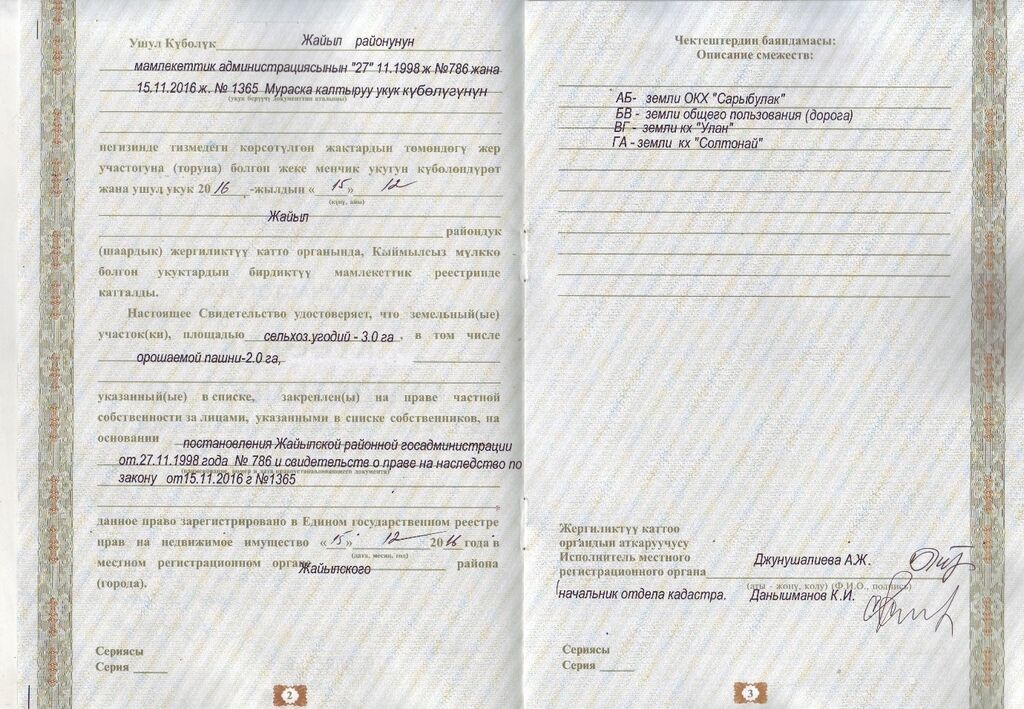 Ушул Күбөлүк Жайыл районунун
мамлекеттик администрациясынын "27" 11.1998 ж №786 жана
15.11.2016 ж. № 1365 Мураска калтыруу укук күбөлүгүнүн
(укук берүүчү документтин аталышы)
негизинде тизмедеги көрсөтүлгөн жактардын төмөндөгү жер
участогуна (торуна) болгон жеке менчик укугун күбөлөндүрөт
жана ушул укук 2016 -жылдын « 15 » 12
(күнү, айы)
Жайыл
райондук
(шаардык) жергиликтүү катто органында, Кыймылсыз мүлккө
болгон укуктардын бирдиктүү мамлекеттик реестринде
катталды.
Настоящее Свидетельство удостоверяет, что земельный(ые)
участок(ки), площадью сельхоз.угодий - 3.0 га , в том числе
орошаемой пашни-2.0 га,
указанный(ые) в списке, закреплен(ы) на праве частной
собственности за лицами, указанными в списке собственников, на
основании постановления Жайылской районной госадминистрации
от.27.11.1998 года № 786 и свидетельств о праве на наследство по
закону от15.11.2016 г №1365
данное право зарегистрировано в Едином государственном реестре
прав на недвижимое имущество « 15 » 12 2016 года в
(дата, месяц, год)
местном регистрационном органе Жайылского района
(города).
Сериясы
Серия
2
Чектештердин баяндамасы:
Описание смежеств:
АБ- земли ОКХ "Сарыбулак"
БВ - земли общего пользования (дорога)
ВГ - земли кх "Улан"
ГА - земли кх "Солтонай"
Жергиликтүү каттоо
органдын аткаруучусу
Исполнитель местного Джунушалиева А.Ж.
регистрационного органа
(аты - жөнү, колу) (Ф.И.О., подпись)
начальник отдела кадастра. Данышманов К.И.
Сериясы
Серия
3